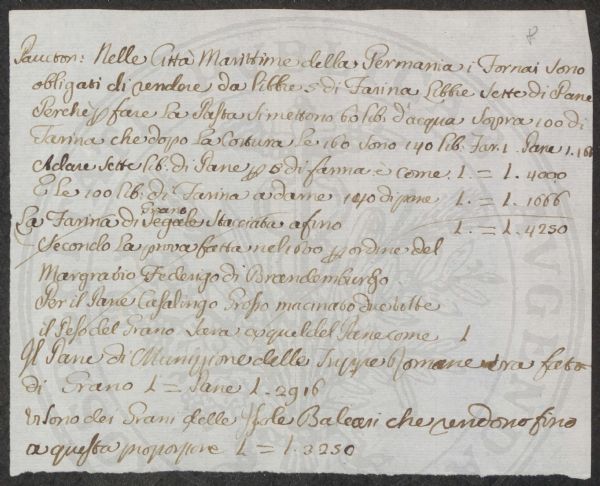 Paucton: Nelle Città Marittime della Permania i Fornai sono
obligati di rendere da libbre 5 di Farina Libbre sette di Pane
Perche p fare la Pasta si mettono 60 lib. d'acqua sopra 100 di
Farina che dopo la Cottura le 160 sono 140 lib. Far. 1. Pane 1.166
A dare sette lib. di Pane p 5 di farina è come: 1. = 1. 4000
E le 100 lib. di Farina a darne 140 di pane 1. = 1. 1666
Grano
La Farina di Segale Stacciata a fino 1. = 1. 4250
Secondo la prova fatta nel 1600 p ordine del
Margravio Federigo di Brandemburgo
Per il Pane Casalingo Grosso macinato due volte
il Peso del Grano era a quel del Pane come 1
Il Pane di Munizione delle Truppe Romane era fatto
di Grano 1 = Pane 1. 2916
Vi sono dei Grani delle Isole Baleari che rendono fino
a questa proporzione 1 = 1. 3250